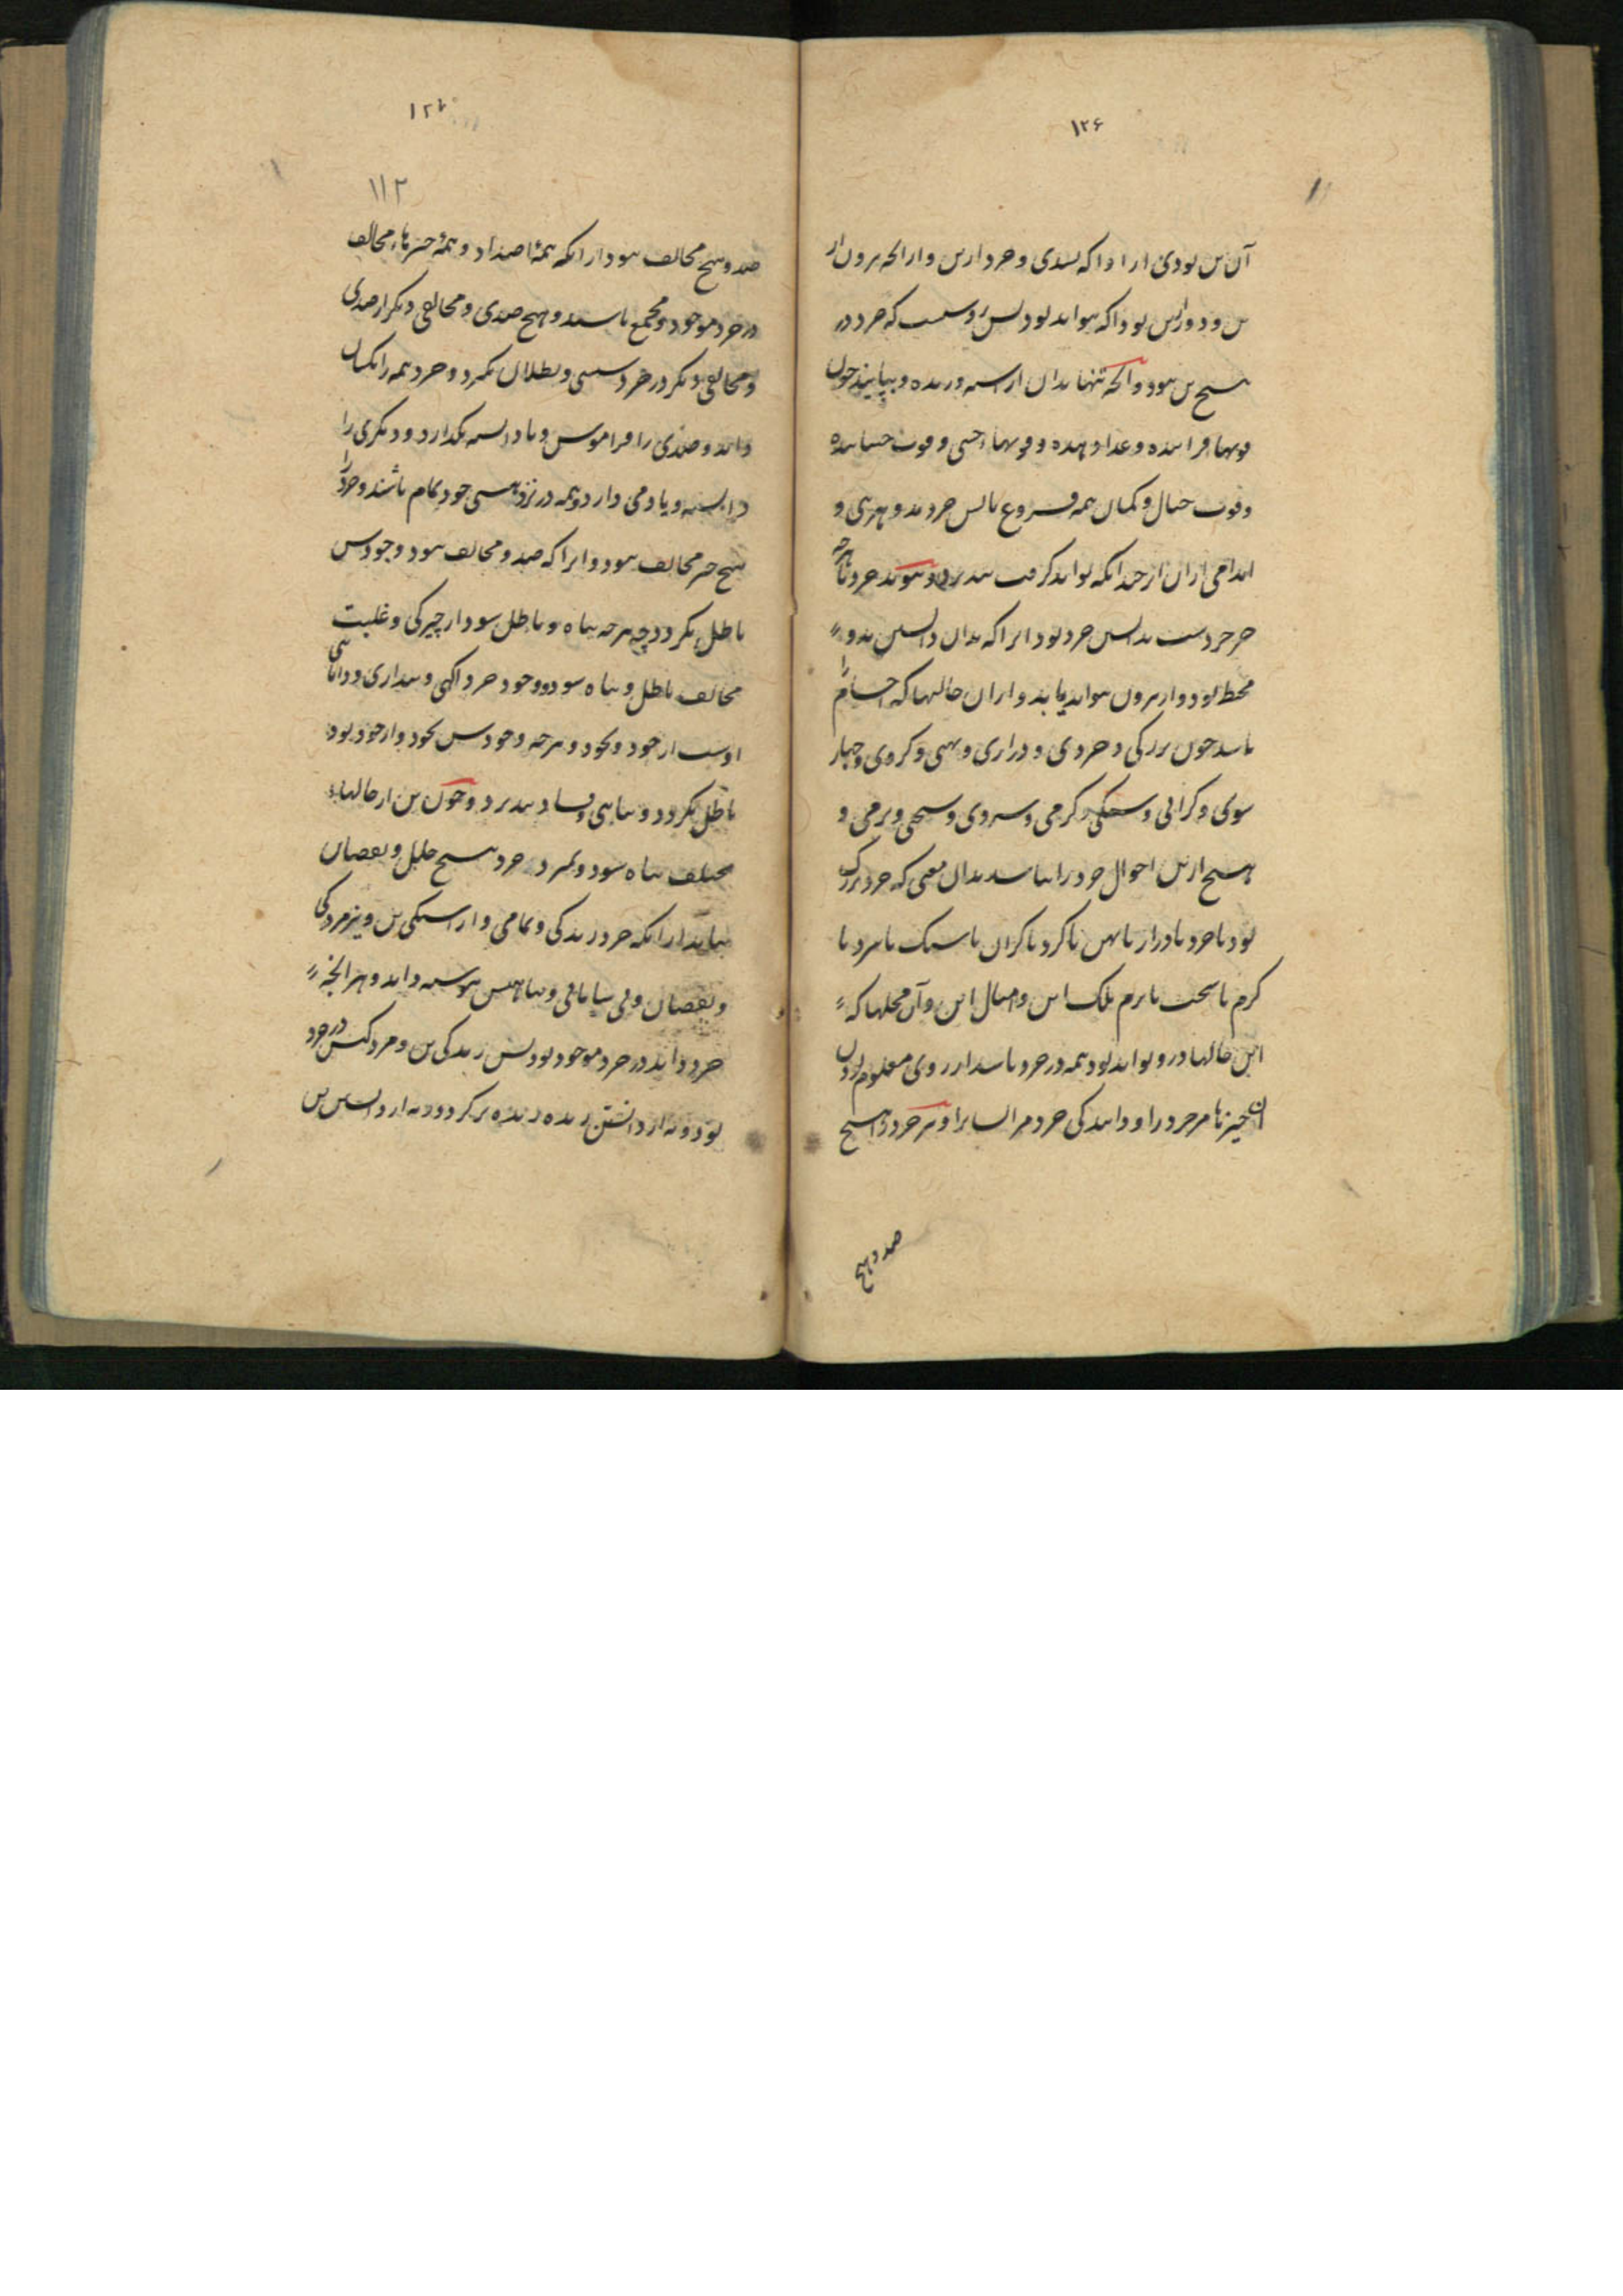 ۱۲۶
آن تن بودی ازیرا که بسدی و خرد از تن و از آنچه برون از
تن و دور از تن بود آگه تواند بود پس روشنست که خرد در
هیچ تن نبود و آنچه تنها بدان آراسته و زنده و بپایند چون
قوتها فزاینده و غذا دهنده و قوتهاء حسی و قوت جنباننده
و قوت خیال و گمان همه فروع تابش خردند و بهری و
اندامی ازان از چندانکه تواند گرفت بپذیرد و پیوند خرد با هر چه
جز خردست بدانستن خرد بود ازیرا که بدان دانستن بدو
محیط بود و از برون تواند یابد و ازان حالها که اجسام را
باشد چون بزرگی و خردی و درازی و پهنی و گردی و چهار
سوی و گرانی و سبکی و گرمی و سردی و سختی و نرمی و
هیچ ازین احوال خرد را نباشد بدان معنی که خرد بزرگ
بود یا خرد یا دراز یا پهن یا گرد یا گران یا سبک یا سرد یا
گرم یا سخت یا نرم بلک این و امثال این و آن محلها که
این حالها درو تواند بود همه در خرد باشد از روی معلوم بودن
آن چیزها مر خرد را و دانندگی خرد مر ایشانرا و نیز خرد را هیچ
ضد و هیچ
۱۲۷
۱۱۲
ضد و هیچ مخالف نبود از آنکه همهٔ اضداد و همهٔ چیزهاء مخالف
در خرد موجود و مجتمع باشند و هیچ ضدی و مخالفی دیگر از ضدی
و مخالفی دیگر در خرد سستی و بطلان نگیرد و خرد همه را یکسان
داند و ضدی را فراموش و نادانسته نگذارد و دیگری را
دانسته و یاد می دارد و همه در نزد هستی خود تمام باشند و خرد را
هیچ چیز مخالف نبود و ازیرا که ضد و مخالف نبود وجودش
باطل نگردد چه هر چه تباه و باطل شود از چیرگی و غلبت
مخالف باطل و تباه شود و وجود خرد آگهی و بیداری و دانائی
اوست از خود و بخود و هر چه وجودش بخود و از خود بود
باطل نگردد و تباهی و فساد نپذیرد و چون تن از حالهاء
مختلف تباه شود و بمیرد خرد هیچ خلل و نقصان
نیابد از آنکه خرد زندگی و تمامی و آراستگی تن و نیز مردگی
و نقصان و بی سامانی و تباهیش پیوسته داند و هر آنچه
خرد داند در خرد موجود بود پس زندگی تن و مردگیش در خرد
بود و نه از دانستن زنده زنده تر گردد و نه از دانستن تن